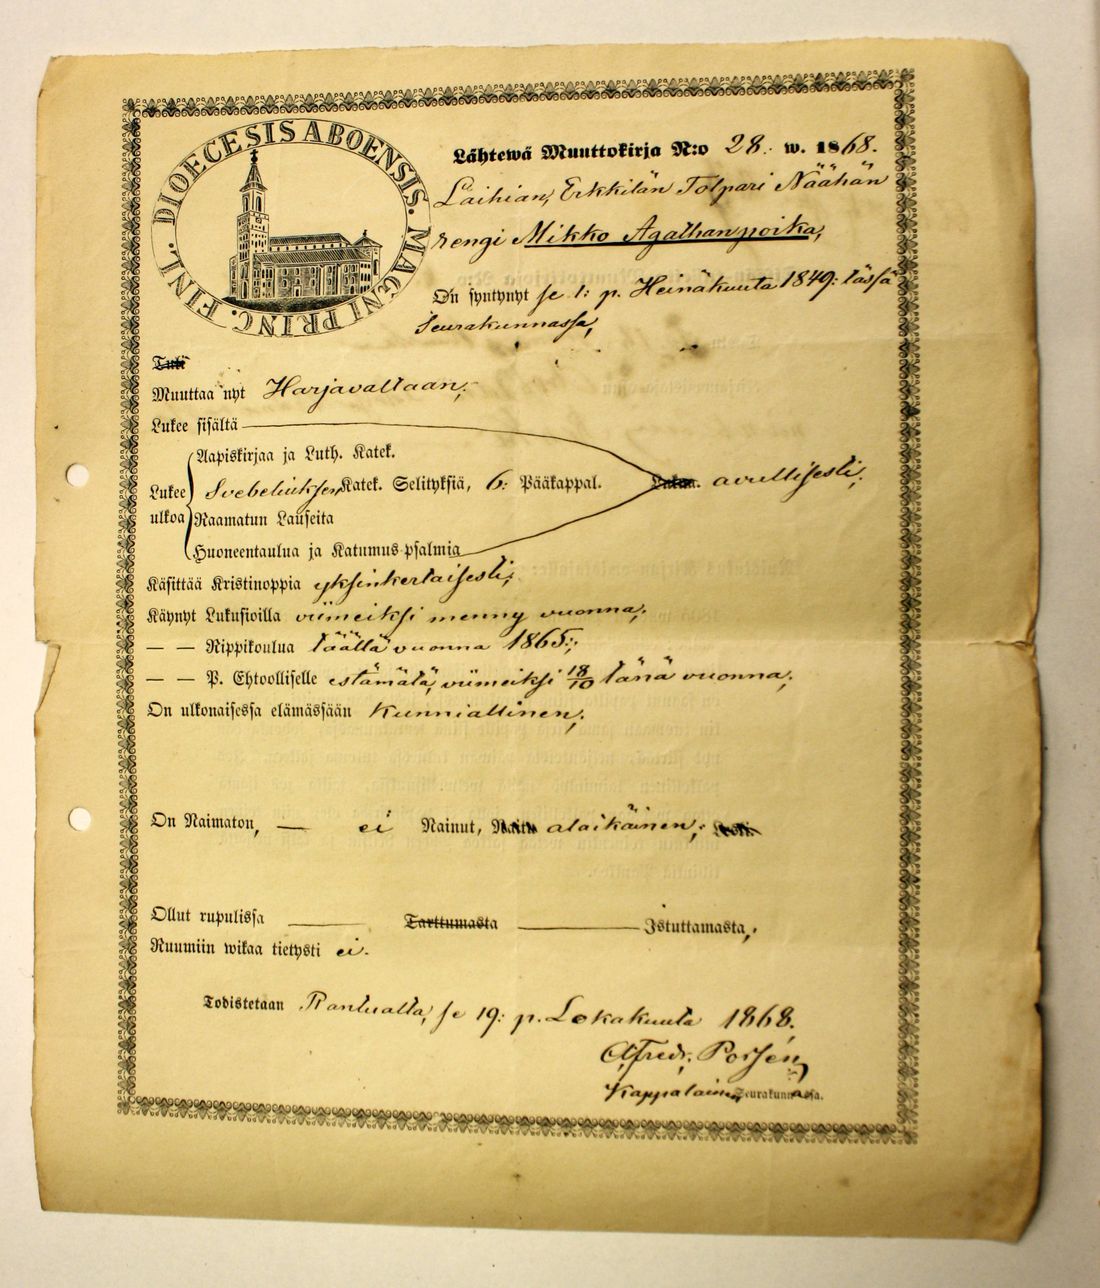 DIOECESIS ABOENSIS. MAGNI PRINC. FINL.
Lähtewä Muuttokirja N:o 28. w. 1868.
Laihian, Erkkilän Tolpari Näähän
rengi Mikko Agathanpoika,
On syntynyt se 1: p. Heinäkuuta 1849: tässä
Seurakunnassa,
Tuli
Muuttaa nyt Harjavaltaan,
Lukee sisältä
Aapiskirjaa ja Luth. Katek.
Lukee ulkoa Svebeliuksen Katek. Selityksiä, 6: Pääkappal. avullisesti,
Raamatun Lauseita
Huoneentaulua ja Katumus-psalmia
Käsittää Kristinoppia yksinkertaisesti,
Käynyt Lukusioilla viimeiksi menny vuonna,
— — Rippikoulua täällä vuonna 1865;
— — P. Ehtoolliselle estämätä, viimeiksi 18/10 tänä vuonna,
On ulkonaisessa elämässään Kunniallinen,
On Naimaton, — ei Nainut, alaikäinen,
Ollut rupulissa Tarttumasta Istuttamasta,
Ruumiin wikaa tietysti ei.
Todistetaan se 19: p. Lokakuuta 1868.
Alfredr. Porsén
Kappalainen Seurakunnassa.